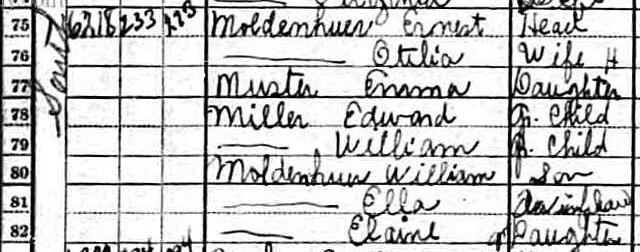 75 6218 233 273 Moldenhuer Ernest Head
76 —— Otilia Wife H
77 Muster Emma Daughter
78 Miller Edward Gr. Child
79 —— William Gr. Child
80 Moldenhuer William Son
81 —— Ella
82 —— Elaine Daughter
South